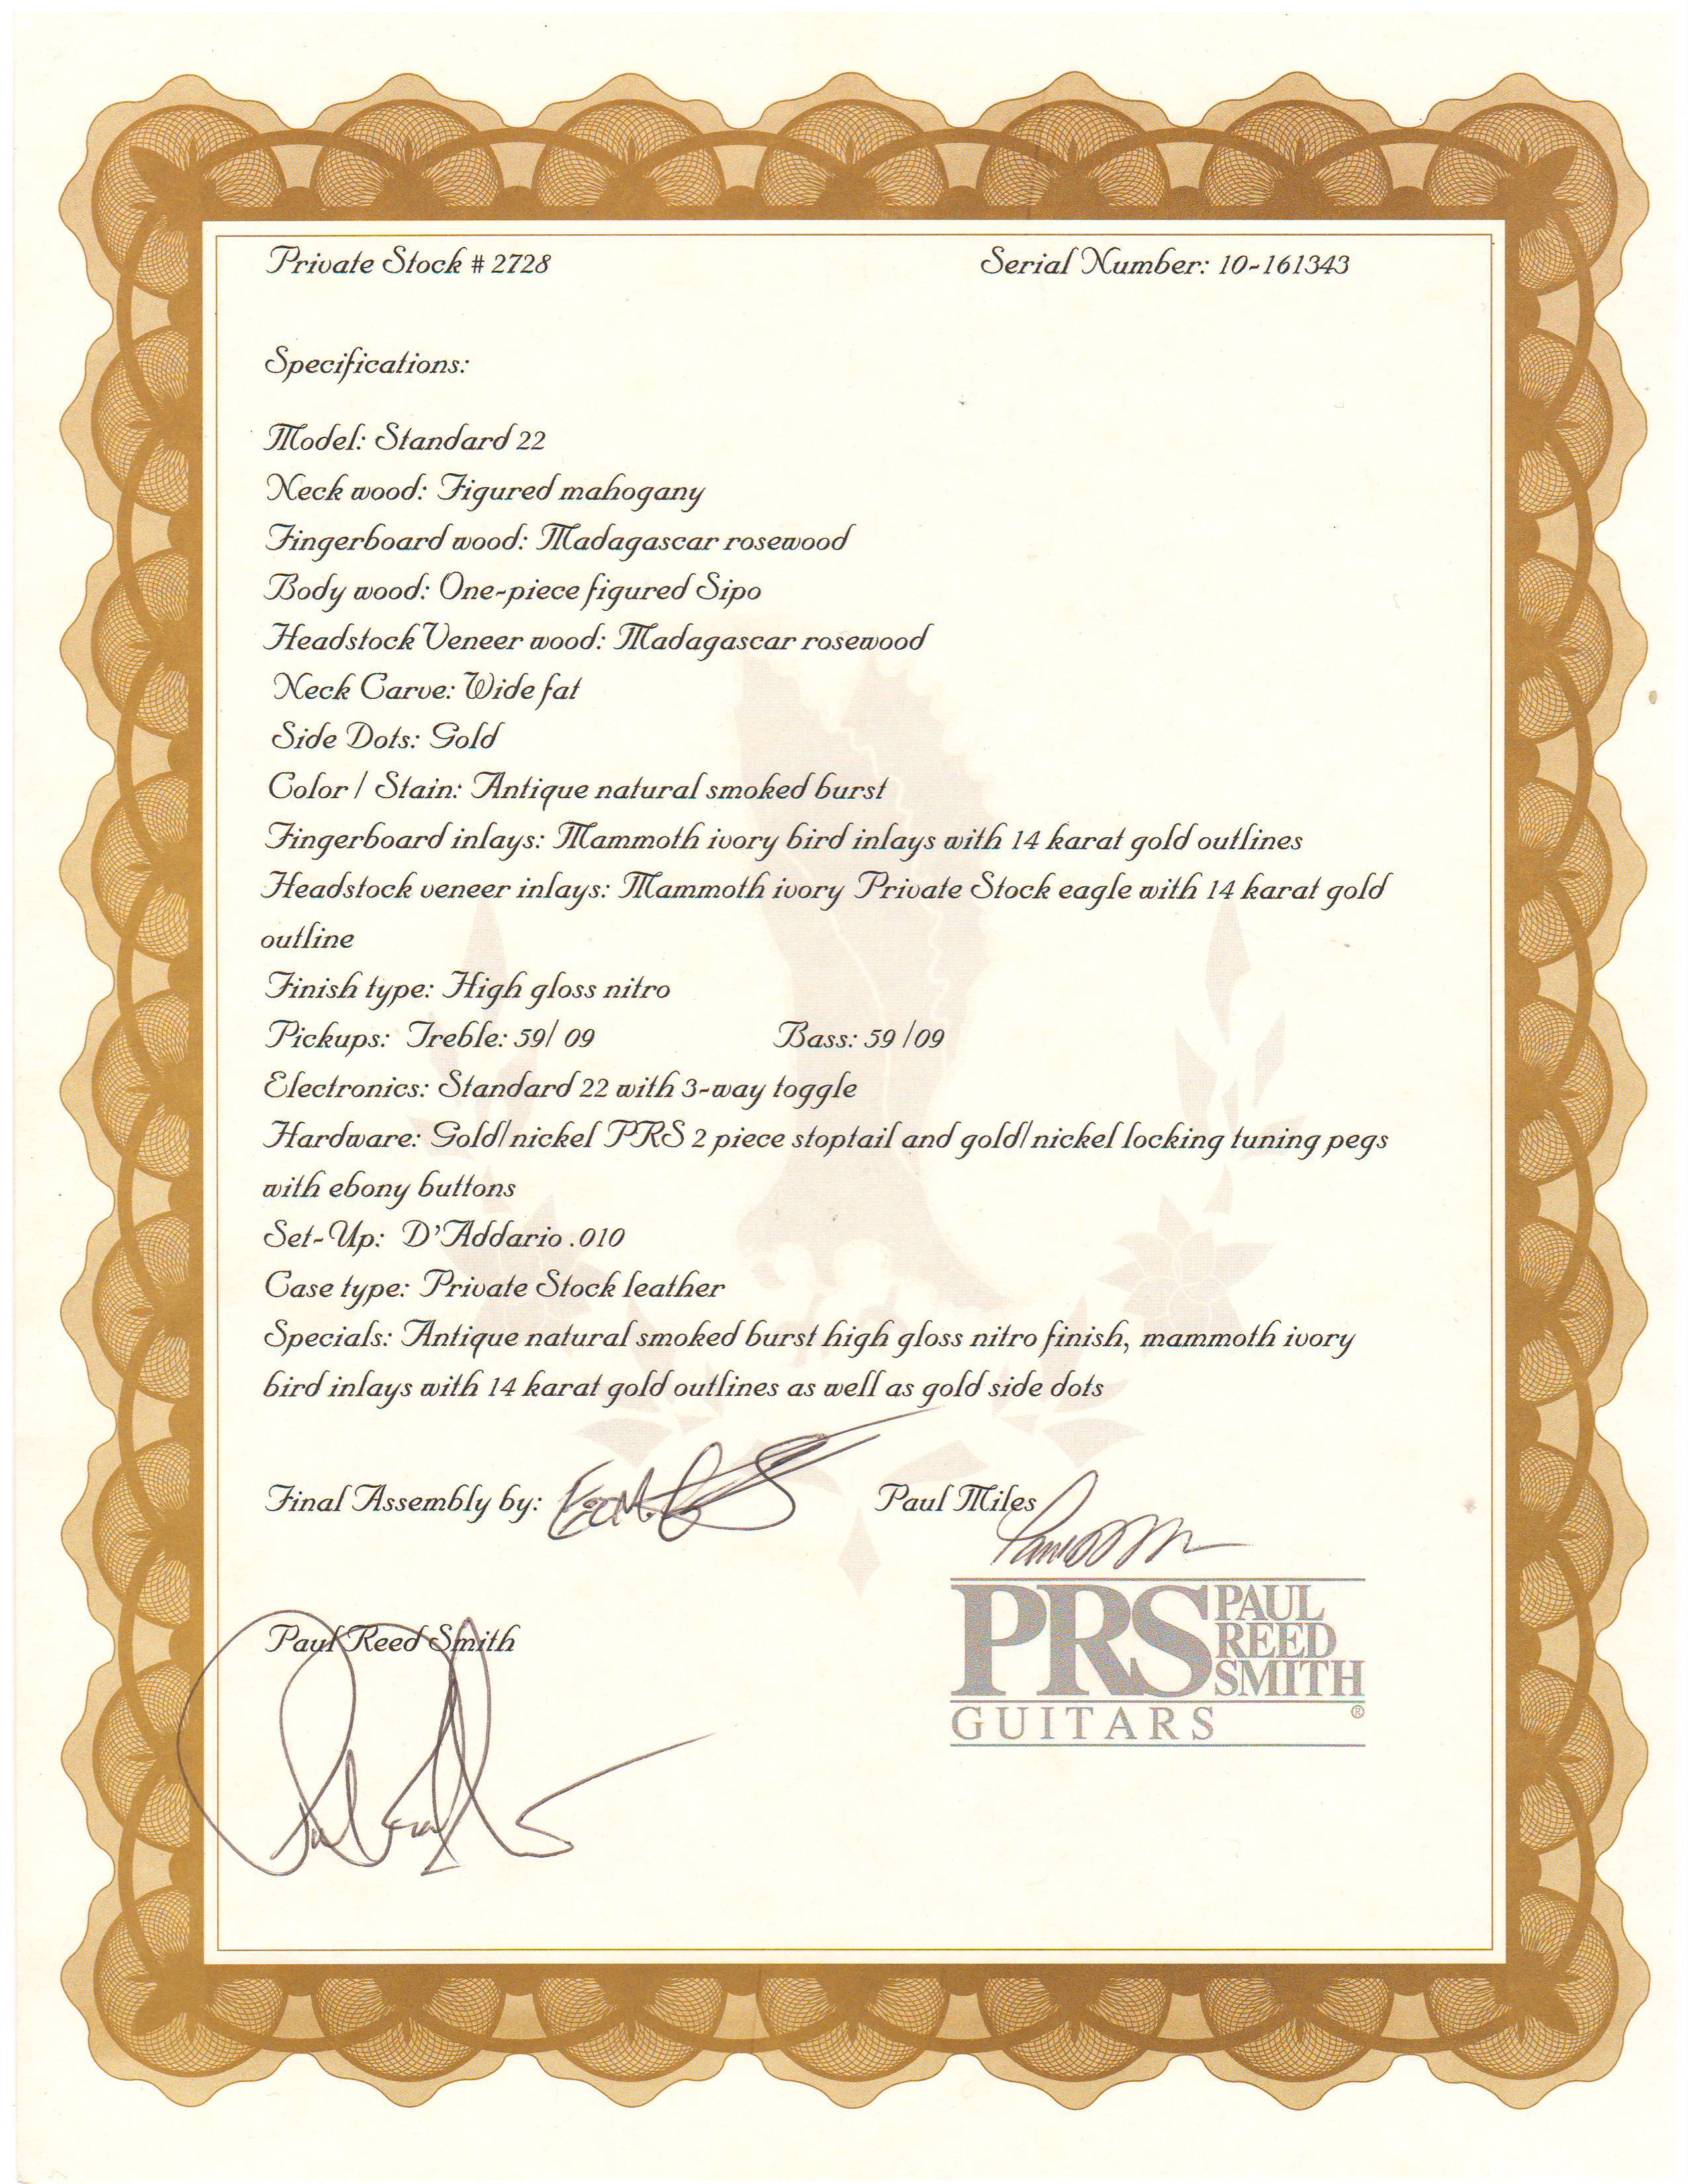 Private Stock # 2728 Serial Number: 10-161343
Specifications:
Model: Standard 22
Neck wood: Figured mahogany
Fingerboard wood: Madagascar rosewood
Body wood: One-piece figured Sipo
Headstock Veneer wood: Madagascar rosewood
Neck Carve: Wide fat
Side Dots: Gold
Color / Stain: Antique natural smoked burst
Fingerboard inlays: Mammoth ivory bird inlays with 14 karat gold outlines
Headstock veneer inlays: Mammoth ivory Private Stock eagle with 14 karat gold
outline
Finish type: High gloss nitro
Pickups: Treble: 59/ 09 Bass: 59 /09
Electronics: Standard 22 with 3-way toggle
Hardware: Gold/nickel PRS 2 piece stoptail and gold/nickel locking tuning pegs
with ebony buttons
Set-Up: D'Addario .010
Case type: Private Stock leather
Specials: Antique natural smoked burst high gloss nitro finish, mammoth ivory
bird inlays with 14 karat gold outlines as well as gold side dots
Final Assembly by: Paul Miles
Paul Reed Smith
PRS PAUL
REED
SMITH
GUITARS ®